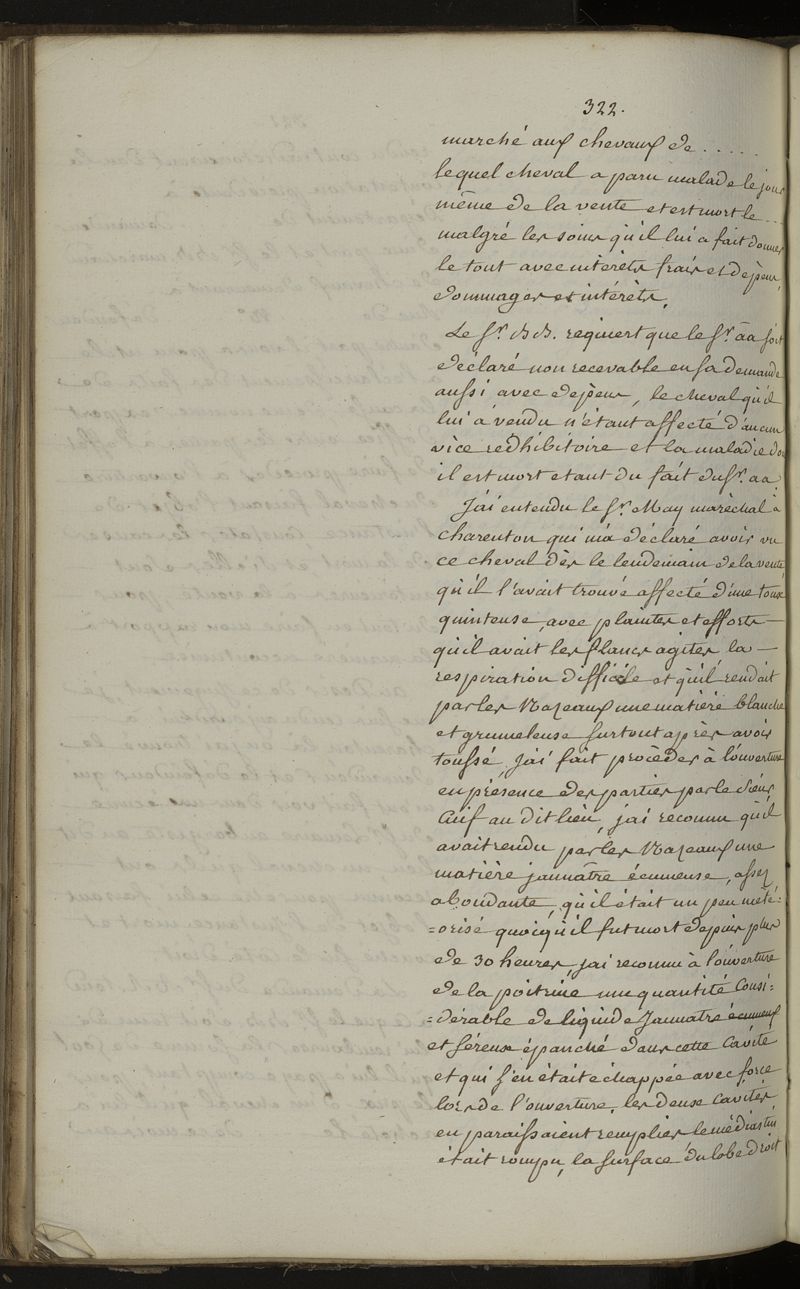 322.
marché aux chevaux de . . . . .
lequel cheval a paru malade le jour
même de la vente et est mort le . . .
malgré les soins qu'il lui a fait donner
le tout avec intérêts frais et dépens,
dommages et intérêts.
Le Sr. B.B. requiert que le Sr. aa soit
déclaré non recevable en sa demande
aussi avec dépens, le cheval qu'il
lui a vendu n'étant affecté d'aucun
vice redhibitoire et la maladie do
il est mort etant du fait du Sr. aa.
J'ai entendu le Sr. May maréchal à
charenton qui m'a déclaré avoir vu
ce cheval dès le lendemain de la vente
qu'il l'avait trouvé affecté d'une toux
quinteuse, avec plaintes et efforts —
qu'il avait les flancs agités, la —
respiration difficile et qu'il rendait
par les Nazeaux une matière blanche
et grumeleuse surtout après avoir
toussé. J'ai fait procèder à l'ouverture
en présence des parties par le Sieur
au dit lieu, j'ai reconnu qu'il
avait rendu par les Nazeaux une
matière jaunâtre écumeuse, assez
abondante, qu'il était un peu mété:
=orisé quoiqu'il fut mort depuis plus
de 30 heures, j'ai reconnu à l'ouverture
de la poitrine une quantité Consi:
=dérable de liquide Jaunatre écumeux
et séreux épanché dans cette Cavité
et qui s'en était échappée avec force
lors de l'ouverture, les deux cavités
en paraissaient remplies le médiastin
était rompu, la surface du lobe droit